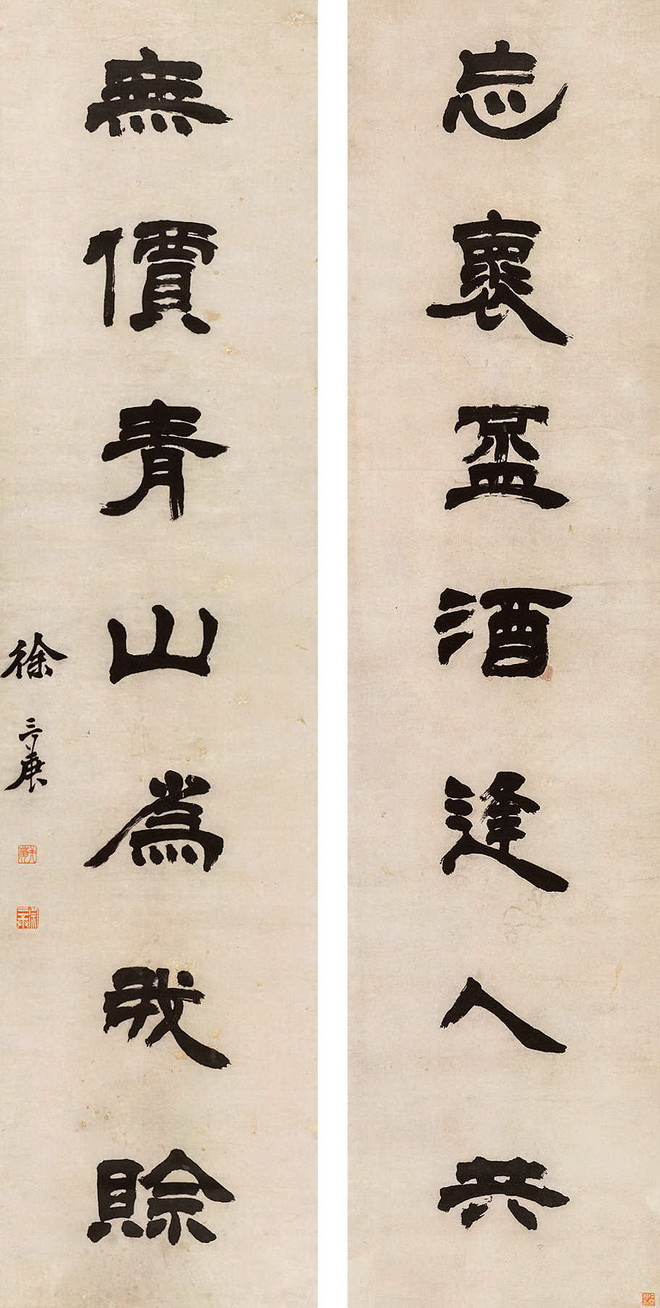 忘褱盃酒逢人共
無價青山為我賒
徐三庚